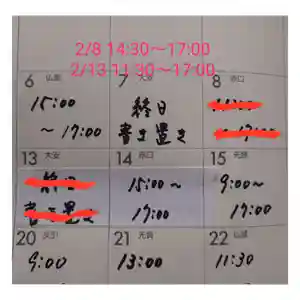 2/8 14:30〜17:00
2/13 11:30〜17:00
6 仏滅
7 大安
8 赤口
15:00
〜17:00
終日
書き置き
17:00
13 大安
14 赤口
15 先勝
終日
書き置き
15:00〜
17:00
9:00〜
17:00
20
21
22 仏滅
9:00
13:00
11:30